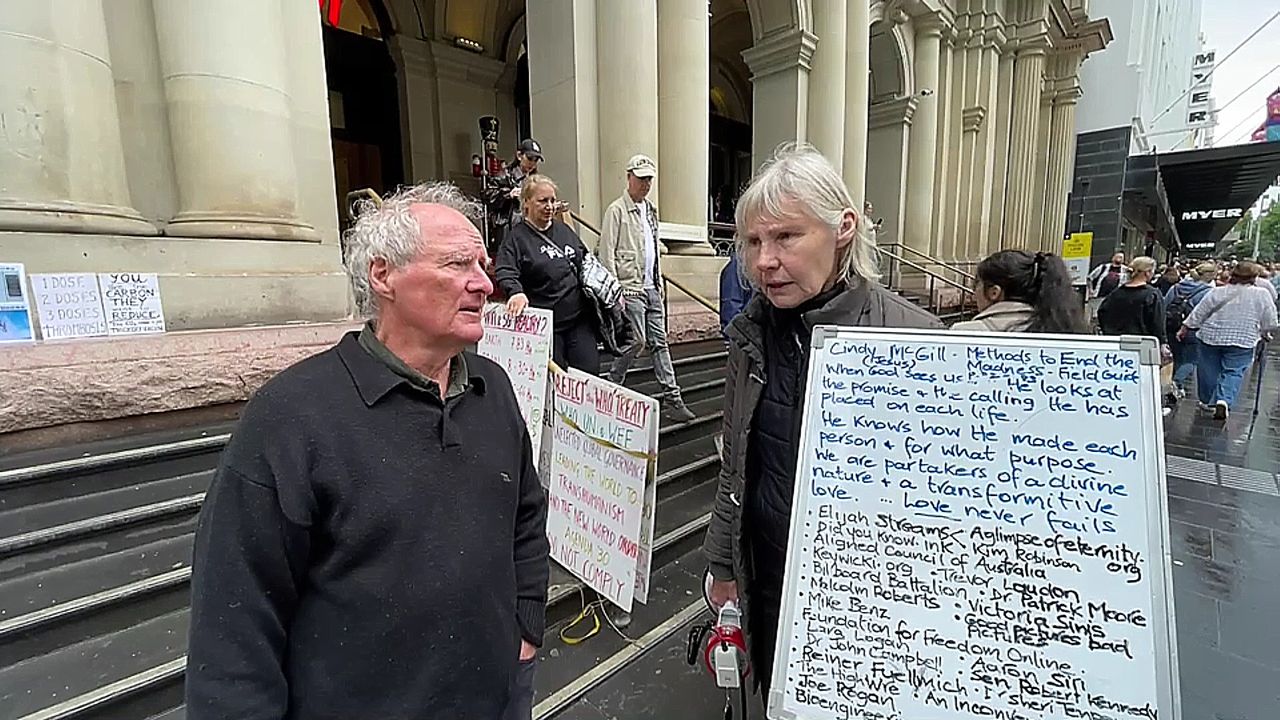 MYER
MYER
1 DOSE
2 DOSES
3 DOSES
THROMBOSIS
YOU
CARBON
THEY
REDUCE
REJECT the WHO TREATY
WHO UN & WEF
UNELECTED GLOBAL GOVERNANCE
LEADING THE WORLD TO
TRANSHUMANISM
AND THE NEW WORLD ORDER
AGENDA 30
NOT COMPLY
Cindy McGill - Methods to End the
(Jesus) Madness - Field Guide
When God sees us He looks at
the promise & the calling He has
placed on each life.
He knows how He made each
person & for what purpose.
We are partakers of a divine
nature & a transformitive
love. ... Love never fails
• Elijah Streams < A glimpse of eternity.
• Did you know. ink • Kim Robinson org
• Aligned Council of Australia
• Keywicki. org • Trevor Loudon
• Billboard Battalion • Dr Patrick Moore
• Malcolm Roberts • Victoria Sinis
• Mike Benz • Good pictures Bad Pictures
• Foundation for Freedom Online
• Lara Logan • Aaron Siri
• Dr John Campbell • Sen. Robert Kennedy
• Reiner Fuellmich • I/ Sheri Tenp
• The HighWire • An Inconv
• Joe Rogan
• Bioengineer